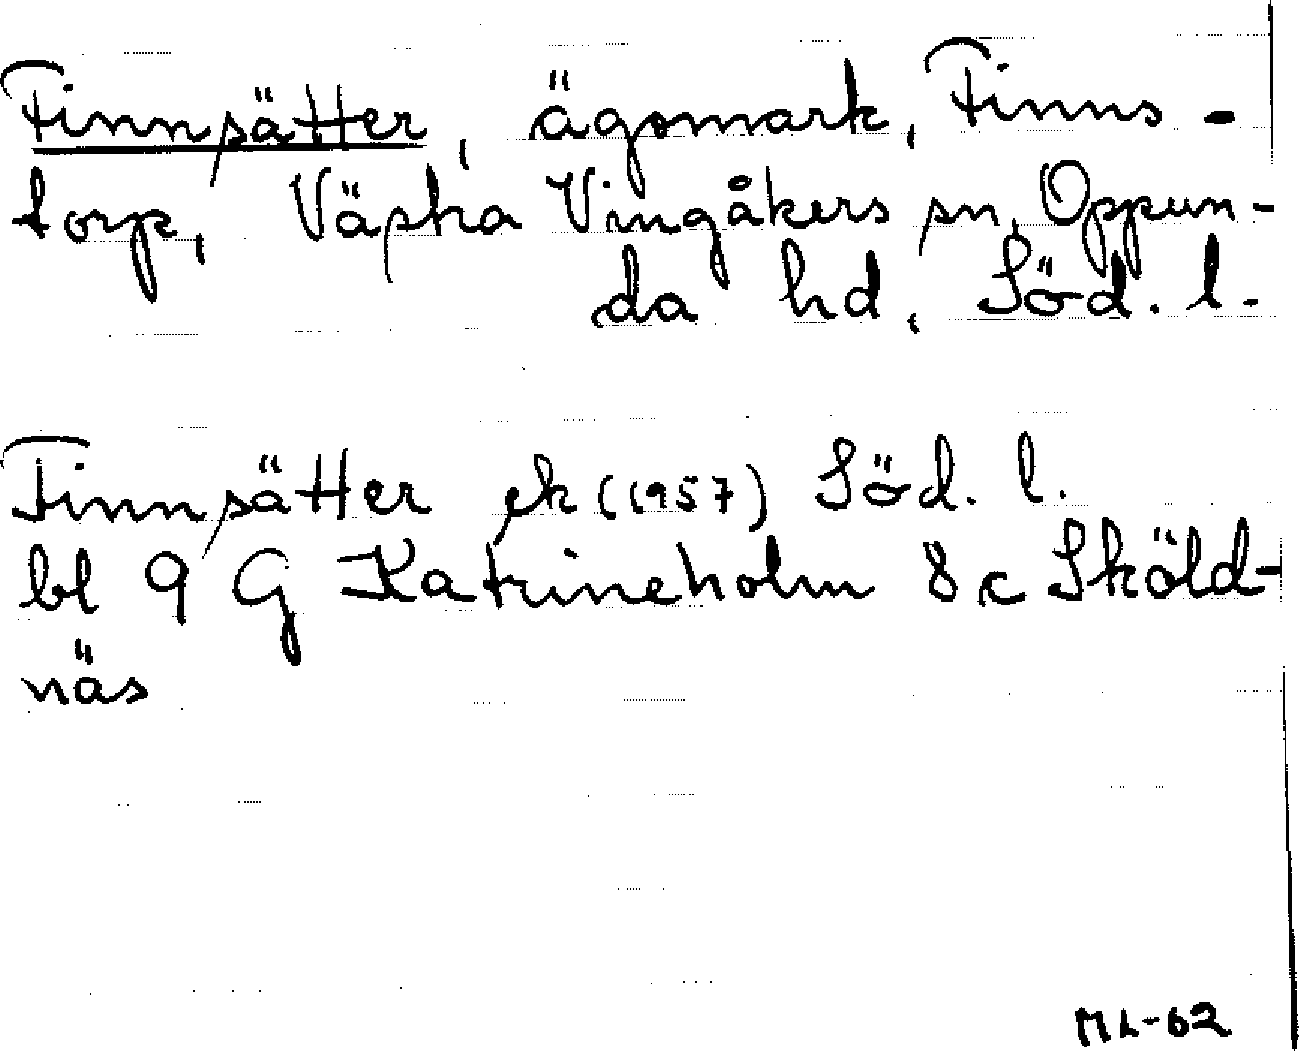 Finnsätter, ägomark, Finns-
torp, Västra Vingåkers sn, Oppun-
da hd, Söd. l.
Finnsätter ek (1957) Söd. l.
bl 9 G Katrineholm 8 c Sköld-
näs
ML-62